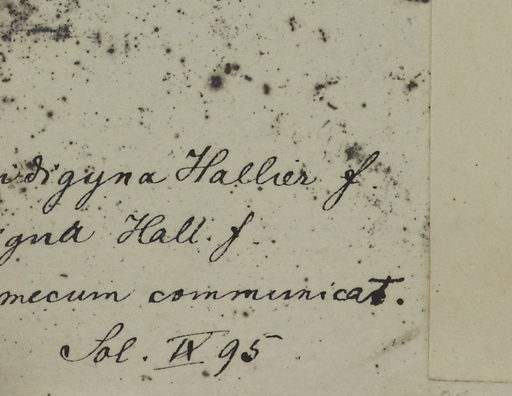 idigyna Hallier f
igna Hall. f.
mecum communicat.
Sol. IX 95